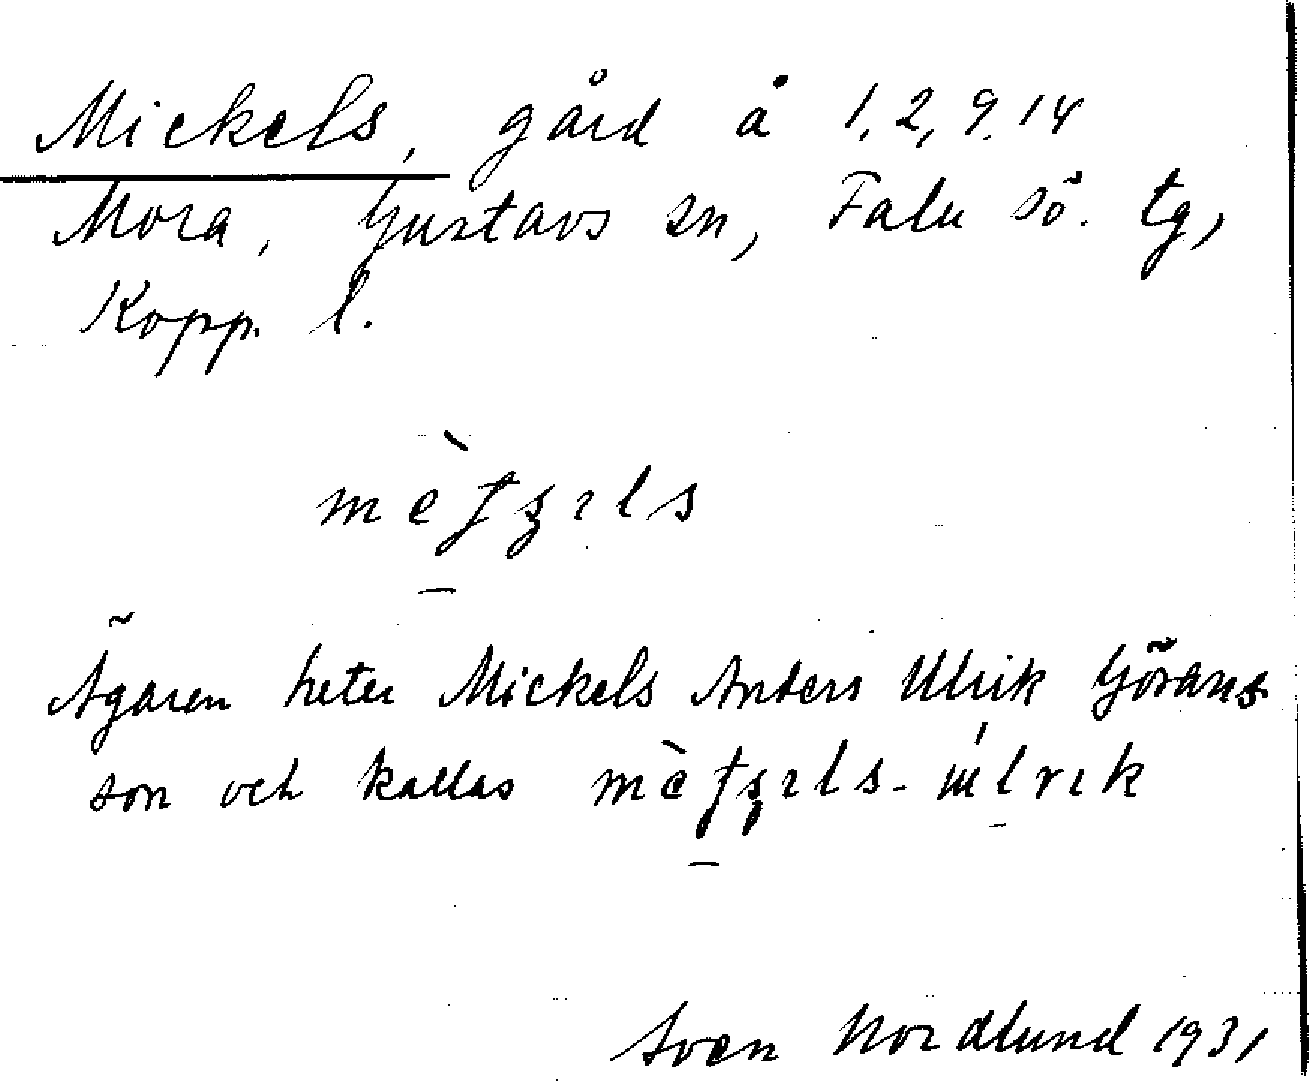 Mickels, gård å 1, 2, 9, 14
Mora, Gustavs sn, Falu sö. tg,
Kopp. l.
Ägaren heter Mickels Anders Ulrik Görans-
son och kallas
Sven Nordlund 1931